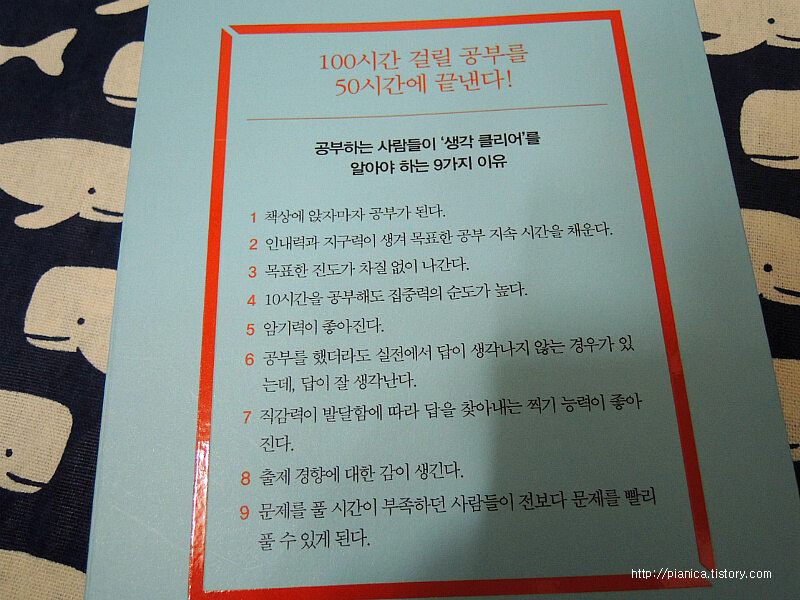 100시간 걸릴 공부를
50시간에 끝낸다!
공부하는 사람들이 '생각 클리어'를
알아야 하는 9가지 이유
1 책상에 앉자마자 공부가 된다.
2 인내력과 지구력이 생겨 목표한 공부 지속 시간을 채운다.
3 목표한 진도가 차질 없이 나간다.
4 10시간을 공부해도 집중력의 순도가 높다.
5 암기력이 좋아진다.
6 공부를 했더라도 실전에서 답이 생각나지 않는 경우가 있
는데, 답이 잘 생각난다.
7 직감력이 발달함에 따라 답을 찾아내는 찍기 능력이 좋아
진다.
8 출제 경향에 대한 감이 생긴다.
9 문제를 풀 시간이 부족하던 사람들이 전보다 문제를 빨리
풀 수 있게 된다.
http://pianica.tistory.com